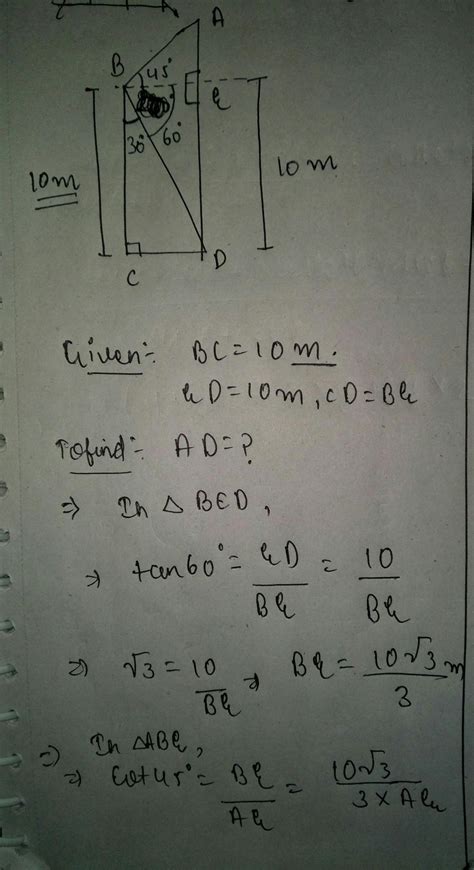 A
B
45°
E
30°
60°
10m
10m
C
D
Given:- BC=10m.
ED=10m, CD=BE
Tofind:- AD=?
⇒ In △ BED,
⇒ tan60° = ED/BE = 10/BE
⇒ √3 = 10/BE ⇒ BE = 10√3/3 m
⇒ In △ABE,
⇒ cot45° = BE/AE = 10√3/3×AE